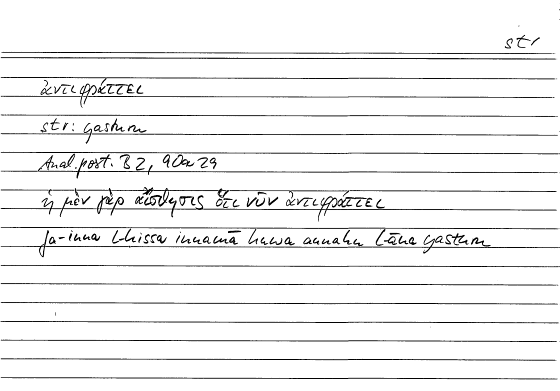 str
ἀντιφράττει
str: yastum
Anal. post. B 2, 90a29
ἡ μὲν γὰρ αἴσθησις ὅτι νῦν ἀντιφράττει
fa-inna l-ḥissa innamā huwa annahu l-āna yasturu